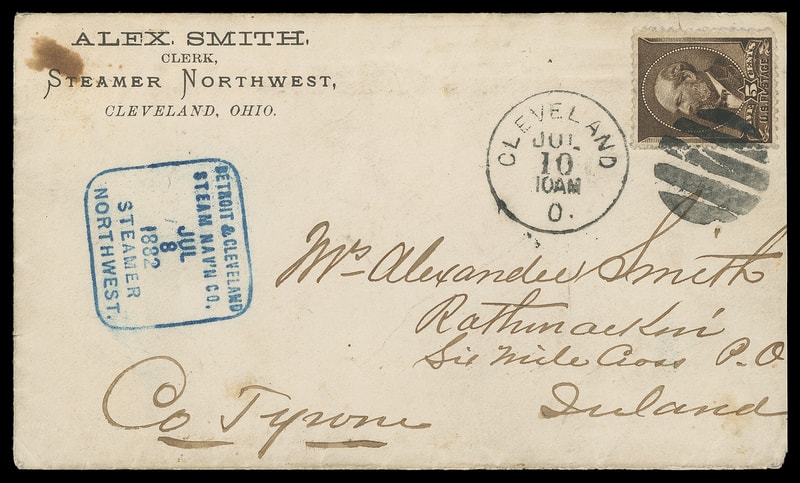 ALEX. SMITH.
CLERK,
STEAMER NORTHWEST,
CLEVELAND, OHIO.
CLEVELAND
JUL
10
10AM
O.
5 CENTS
DETROIT & CLEVELAND
STEAM NAV'N CO.,
JUL
8
1882
STEAMER
NORTHWEST.
Mrs Alexander Smith
Six Mile Cross P.O
Co Tyrone
Ireland